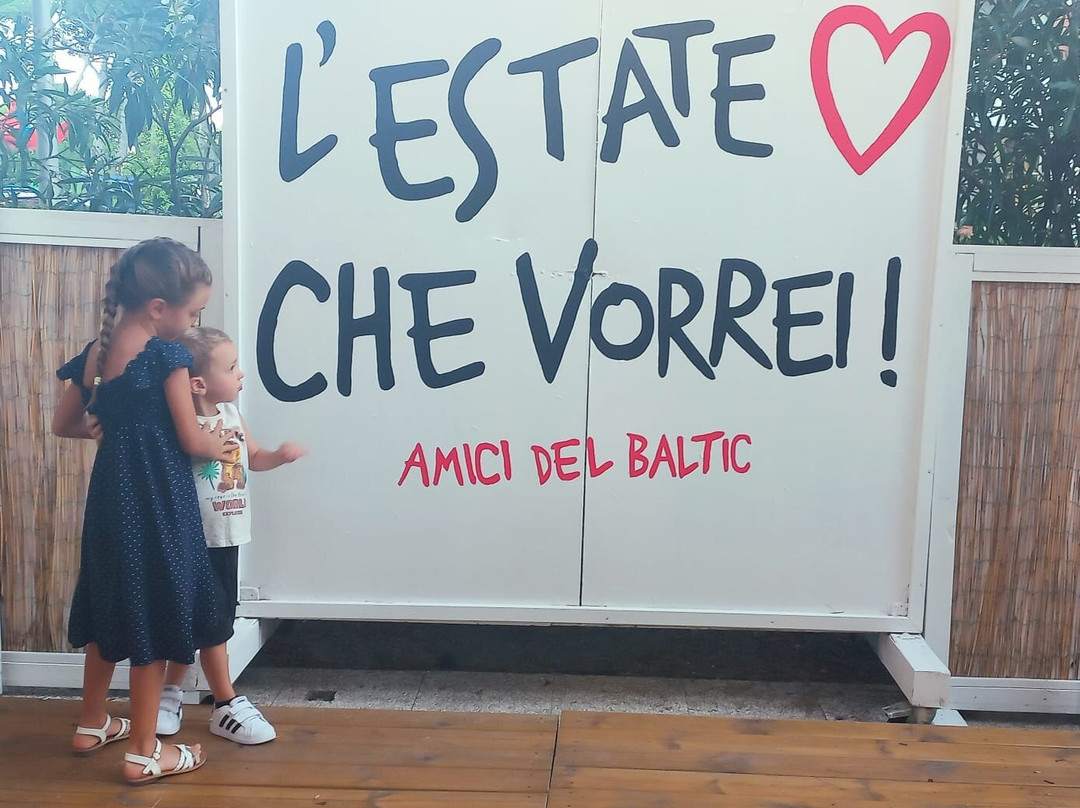 L'ESTATE
CHE VORREI!
AMICI DEL BALTIC
WORLD
EXPLORER